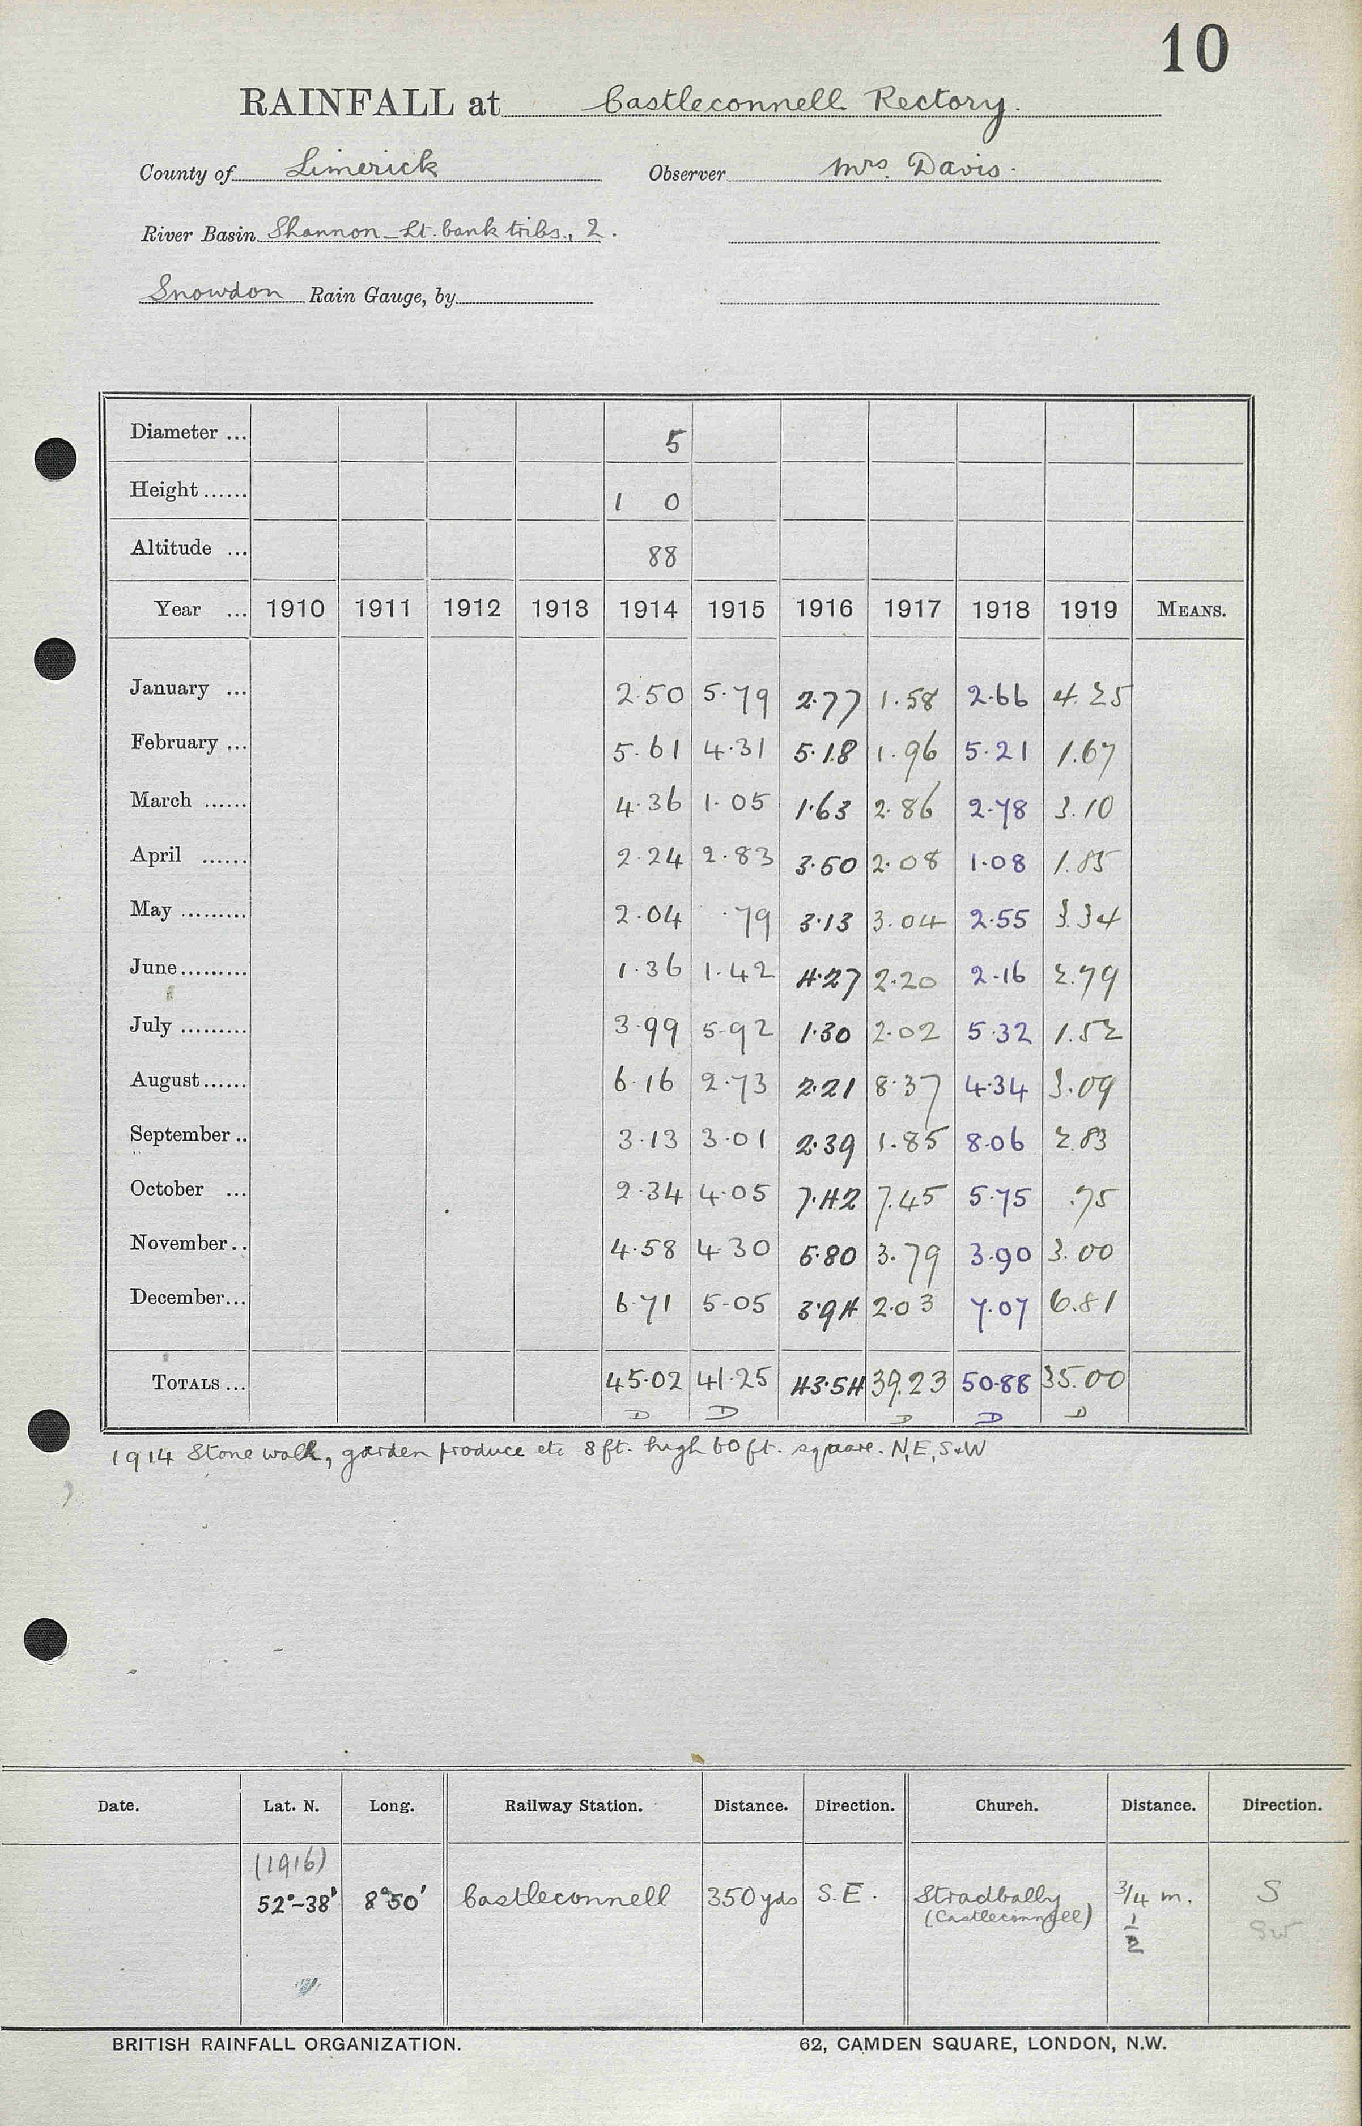 10
RAINFALL at Castleconnell Rectory.
County of Limerick Observer Mrs. Davis.
River Basin Shannon - Lt. bank tribs., 2.
Snowdon Rain Gauge, by
Diameter ... 5
Height ...... 1 0
Altitude ... 88
Year ... 1910 1911 1912 1913 1914 1915 1916 1917 1918 1919 MEANS.
January ... 2.50 5.79 2.77 1.58 2.66 4.25
February ... 5.61 4.31 5.18 1.96 5.21 1.67
March ...... 4.36 1.05 1.63 2.86 2.78 3.10
April ...... 2.24 2.83 3.50 2.08 1.08 1.85
May ......... 2.04 .79 3.13 3.04 2.55 3.34
June ......... 1.36 1.42 4.27 2.20 2.16 2.79
July ......... 3.99 5.92 1.30 2.02 5.32 1.52
August ...... 6.16 2.73 2.21 8.37 4.34 3.09
September .. 3.13 3.01 2.39 1.85 8.06 2.83
October ... 2.34 4.05 7.42 7.45 5.75 .75
November .. 4.58 4.30 5.80 3.79 3.90 3.00
December ... 6.71 5.05 3.94 2.03 7.07 6.81
TOTALS ... 45.02 41.25 43.54 39.23 50.88 35.00
D D D D D
1914 Stone walk, garden produce etc 8 ft. high 60 ft. square. N, E, S & W
Date. Lat. N. Long. Railway Station. Distance. Direction. Church. Distance. Direction.
(1916)
52°-38' 8°50' Castleconnell 350 yds S.E. Stradbally 3/4 m. S
(Castleconnell) 1/2 SW
BRITISH RAINFALL ORGANIZATION. 62, CAMDEN SQUARE, LONDON, N.W.